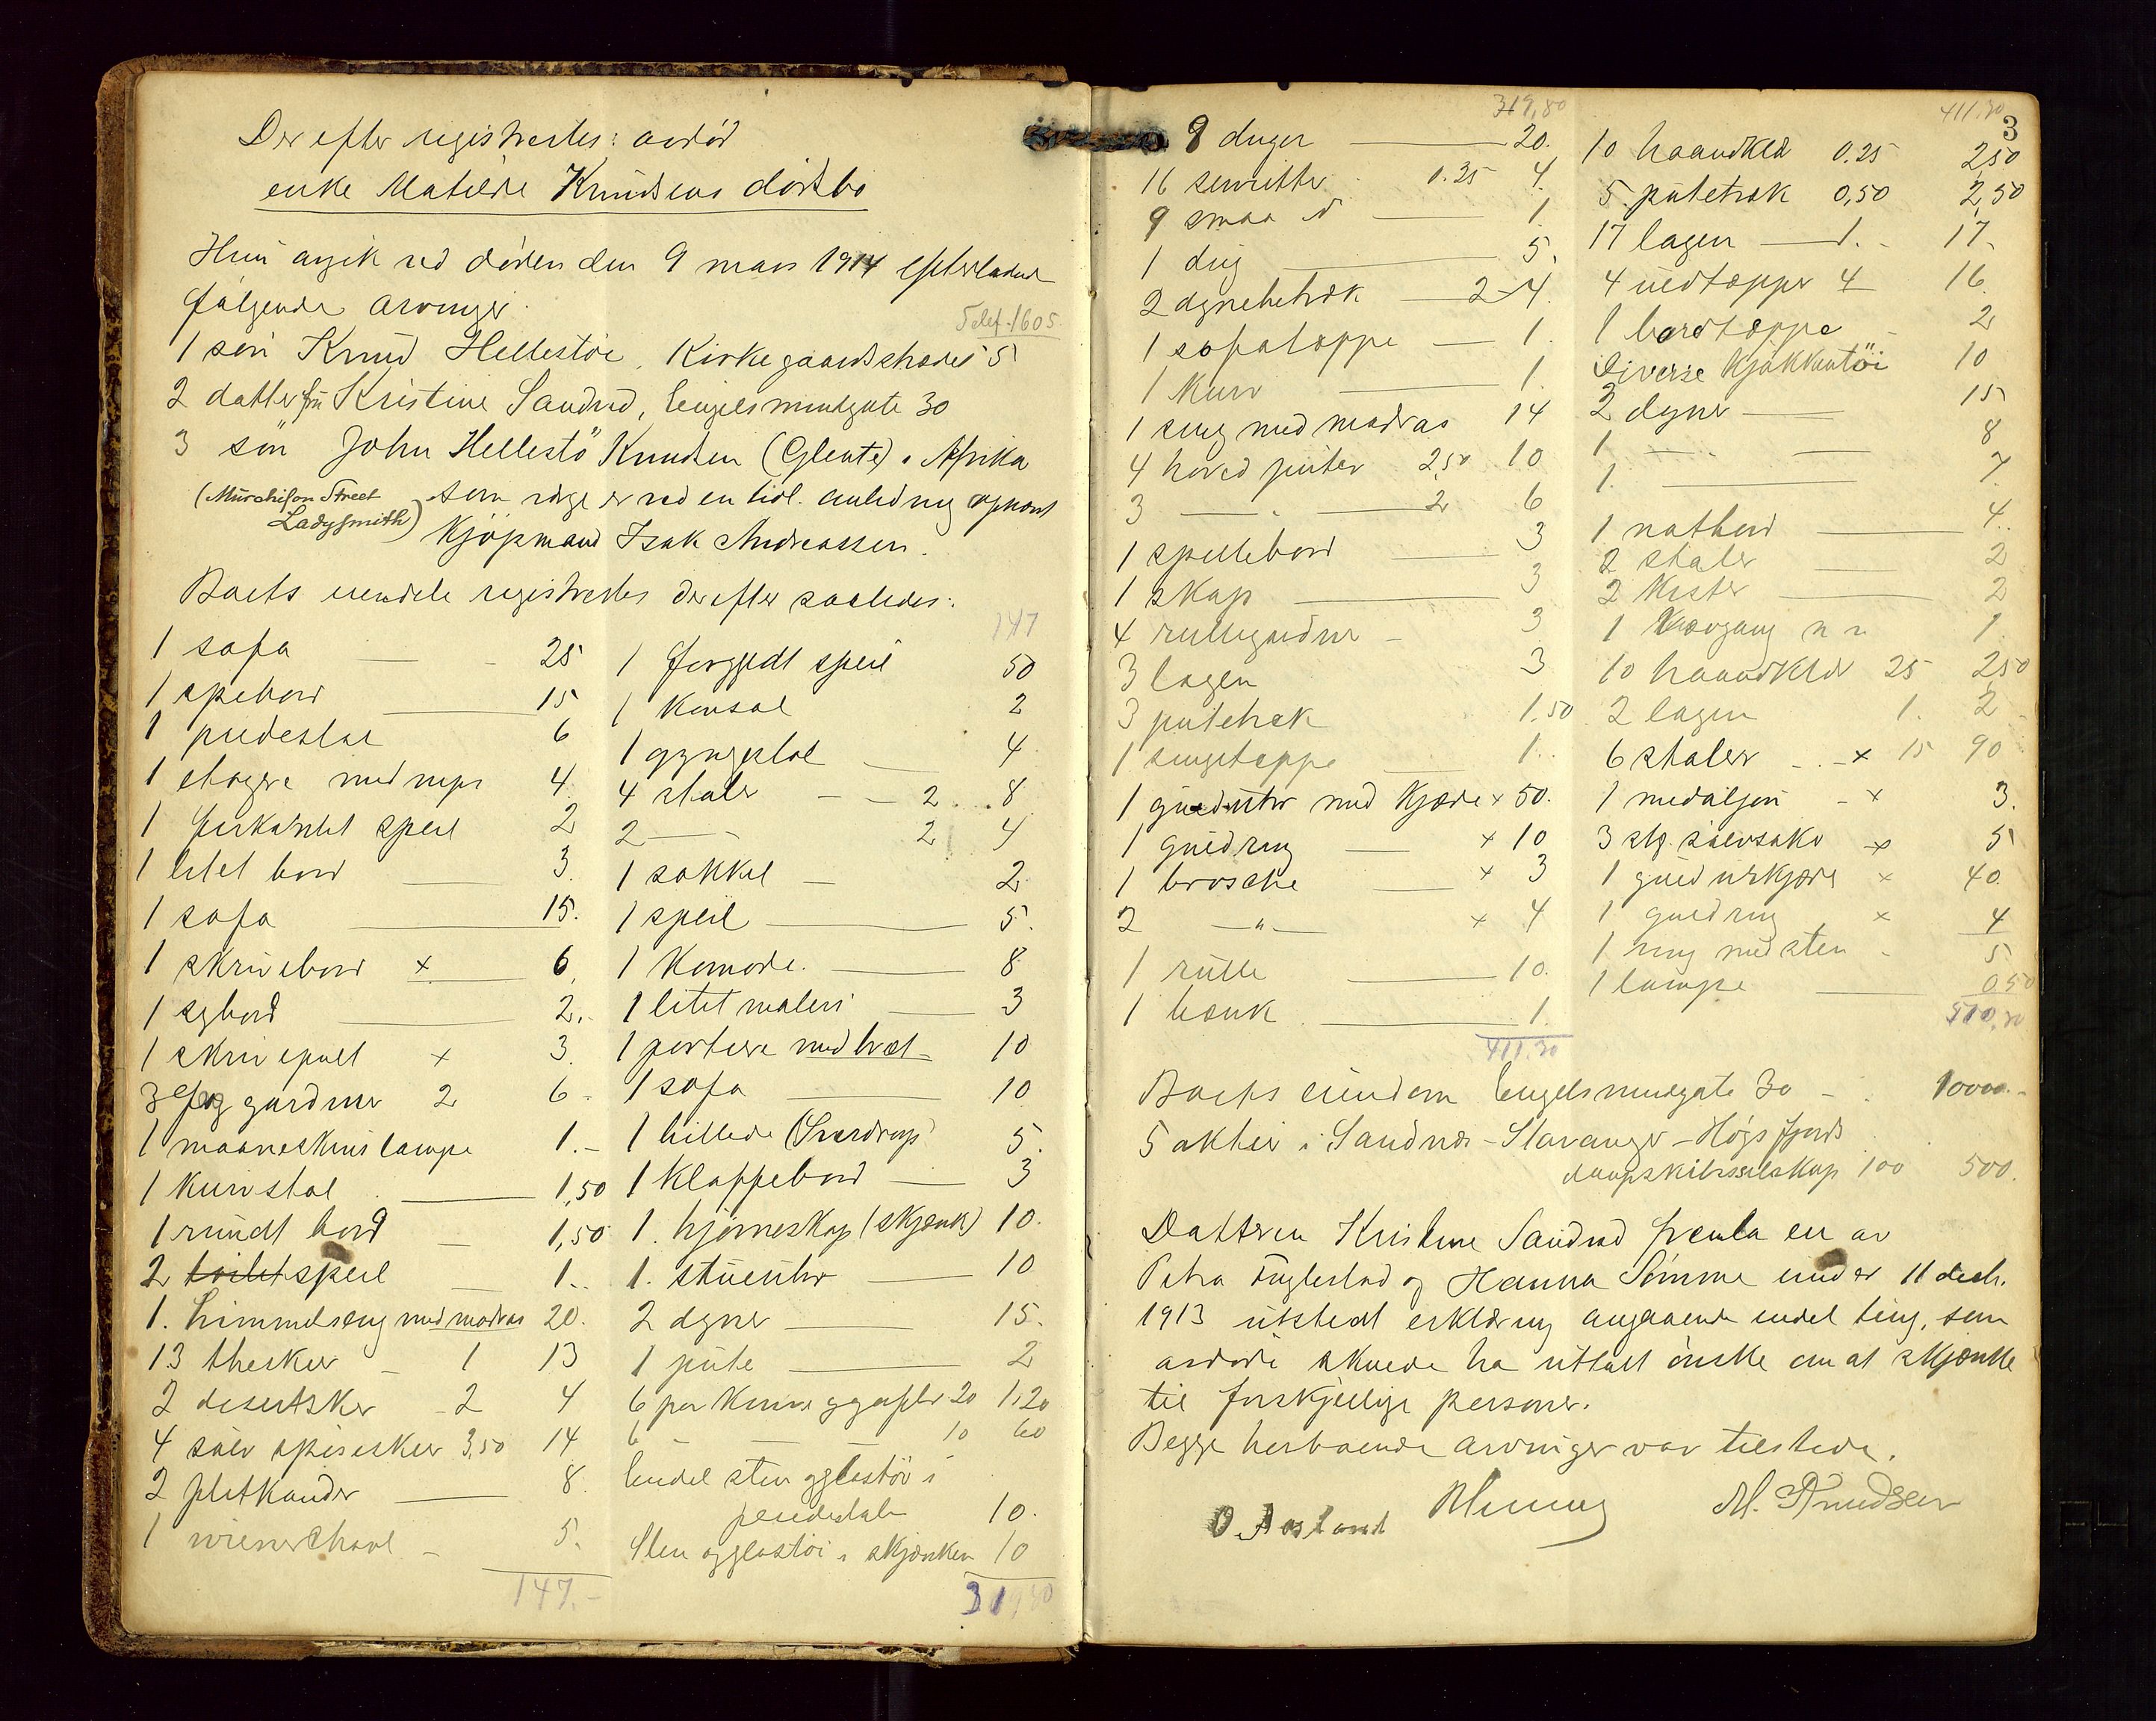 Derefter registrertes: avdød
enke Matilde Knudsens dødsbo
Hun avgik ved døden den 9 mars 1914 efterladende
følgende arvinger.
Telef. 1605
1 søn Knud Hellestøe, Kirkegaardsstrædet 5
2 datter fru Kristine Sandved, Engelsmindgate 30
3 søn John Hellestö Knudsen (Glente) i Afrika
(Murchison Street
Ladysmith)
som værge er ved en tidl. anledning opnævnt
Kjøpmand Isak Andreassen.
Boets eiendele registrertes derefter saaledes:
1 sofa 25
1 spisebord 15
1 piedestal 6
1 etagere med nips 4
1 firkantet speil 2
1 litet bord 3.
1 sofa 15.
1 skrivebord x 6.
1 sybord 2.-
1 skrivepult x 3.
3 fag gardiner 2 6-
1 maaneskinslampe 1.-
1 kurvstol 1,50
1 rundt bord 1,50
2 toilet speil 1.-
1. himmelseng med madras 20.
13 theskeer 1 13
2 desertskeer 2 4
4 sølv spiseskeer 3,50 14
2 pletkander 8.
1 wienerchavl 5.
147.-
147
1 forgyldt speil 50
1 konsol 2
1 gyngestol 4
4 stoler 2. 8
2 — 2 4
1 sokkel 2
1 speil 5.
1 Komode. 8
1 litet maleri 3
1 portiere med bræt 10
1 sofa 10
1 billede (Sverdrup) 5.
1 Klappebord 3
1. hjørneskap (skjænk) 10.
1. stueuhr 10
2 dyner 15.
1 pute 2
6 par knive og gafler 20 1,20
6 — 10 60
Endel sten og glastøi i
piedestalen 10.
Sten og glastøi i skjænken 10
319,80
319,80
8 duger 20.
16 servietter 0.25 4.
9 smaa d 1
1 dug 5.
2 dynebetræk 2 4.
1 sofatæppe 1.
1 Kurv 1.
1 seng med madras 14
4 hoved puter 2,50 10
3 — 2 6
1 spillebord 3
1 skap 3
4 rullegardiner 3
3 lagen 3
3 putetræk 1.50
1 sengetæppe 1.
1 gulduhr med Kjæde x 50.
1 guldring x 10
1 brosche x 3
2 —"— x 4
1 rulle 10.
1 bænk 1.
411.30
411.30
3
10 haandklæ 0.25 2,50
5. putetræk 0,50 2,50
17 lagen 1.- 17-
4 uldtæpper 4 16.
1 bordtæppe 2
Diverse Kjøkkentöi 10
2 dyner 15
1 — 8
1. — 7.
1 natbord 4.
2 stoler 2
2 Kister 2
1 1.
10 haandklær 25 2,50
2 lagen 1. 2
6 stoler x 15 90
1 medaljon x 3.
3 stk. sølvsaker x 5
1 guld urkjæde x 40.
1 guldring x 4
1 ring med sten 5
1 lampe 0.50
Boets eiendom Engelsmindgate 30 10000.-
5 aktier i Sandnæs-Stavanger-Högsfjords
dampskibsselskap 100 500.
Datteren Kristine Sandved fremla en av
Petra Fuglestad og Hanna Sømme under 11 decbr.
1913 utstedt erklæring angaaende endel ting, som
avdøde skulde ha uttalt ønske om at skjænke
til forskjellige personer.
Begge herboende arvinger var tilstede.
O. Aasland M. Knudsen